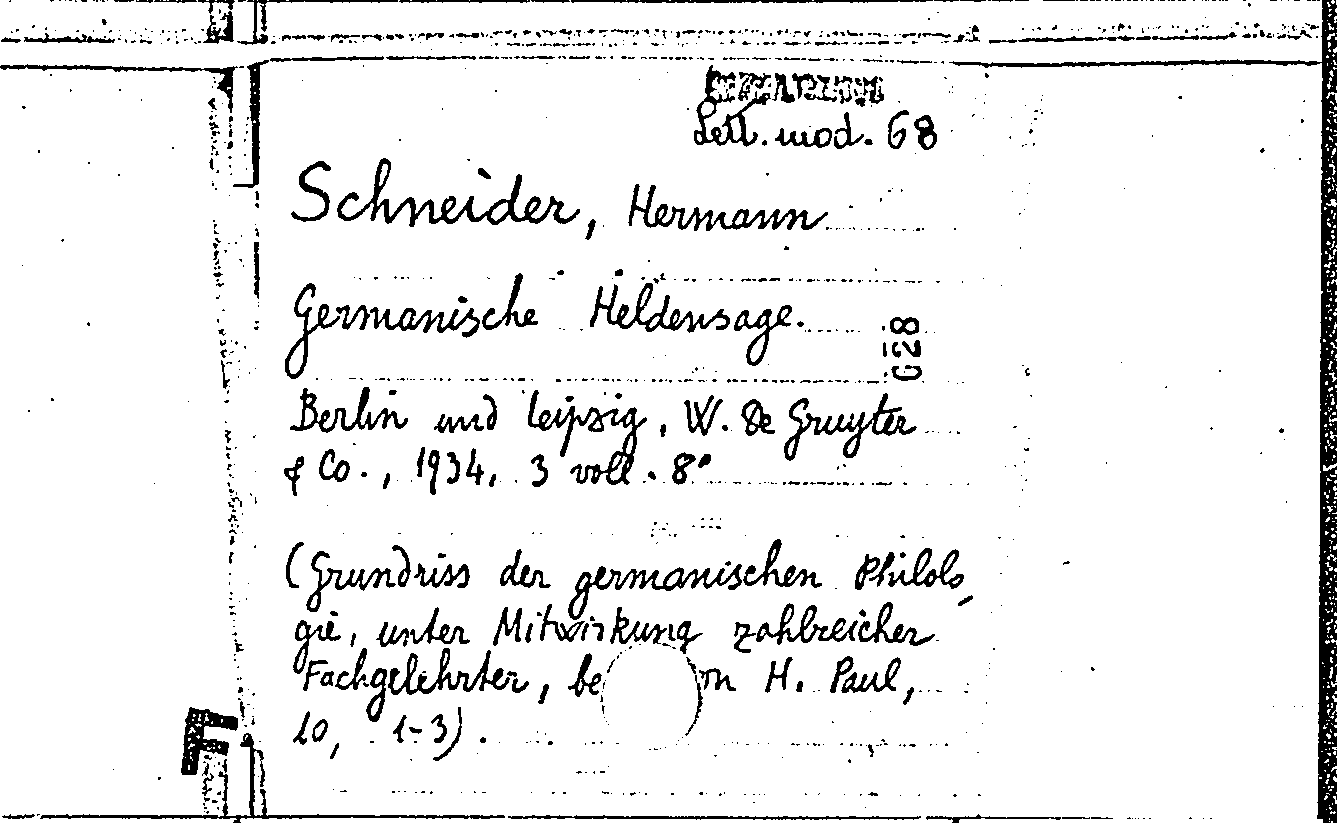 Lett. mod. 68
Schneider, Hermann
Germanische Heldensage.
G28
Berlin und Leipzig, W. de Gruyter
& Co., 1934, 3 voll. 8°
(Grundriss der germanischen Philolo,
gie, unter Mitwirkung zahlreicher
Fachgelehrter, be on H. Paul,
10, 1-3).
F